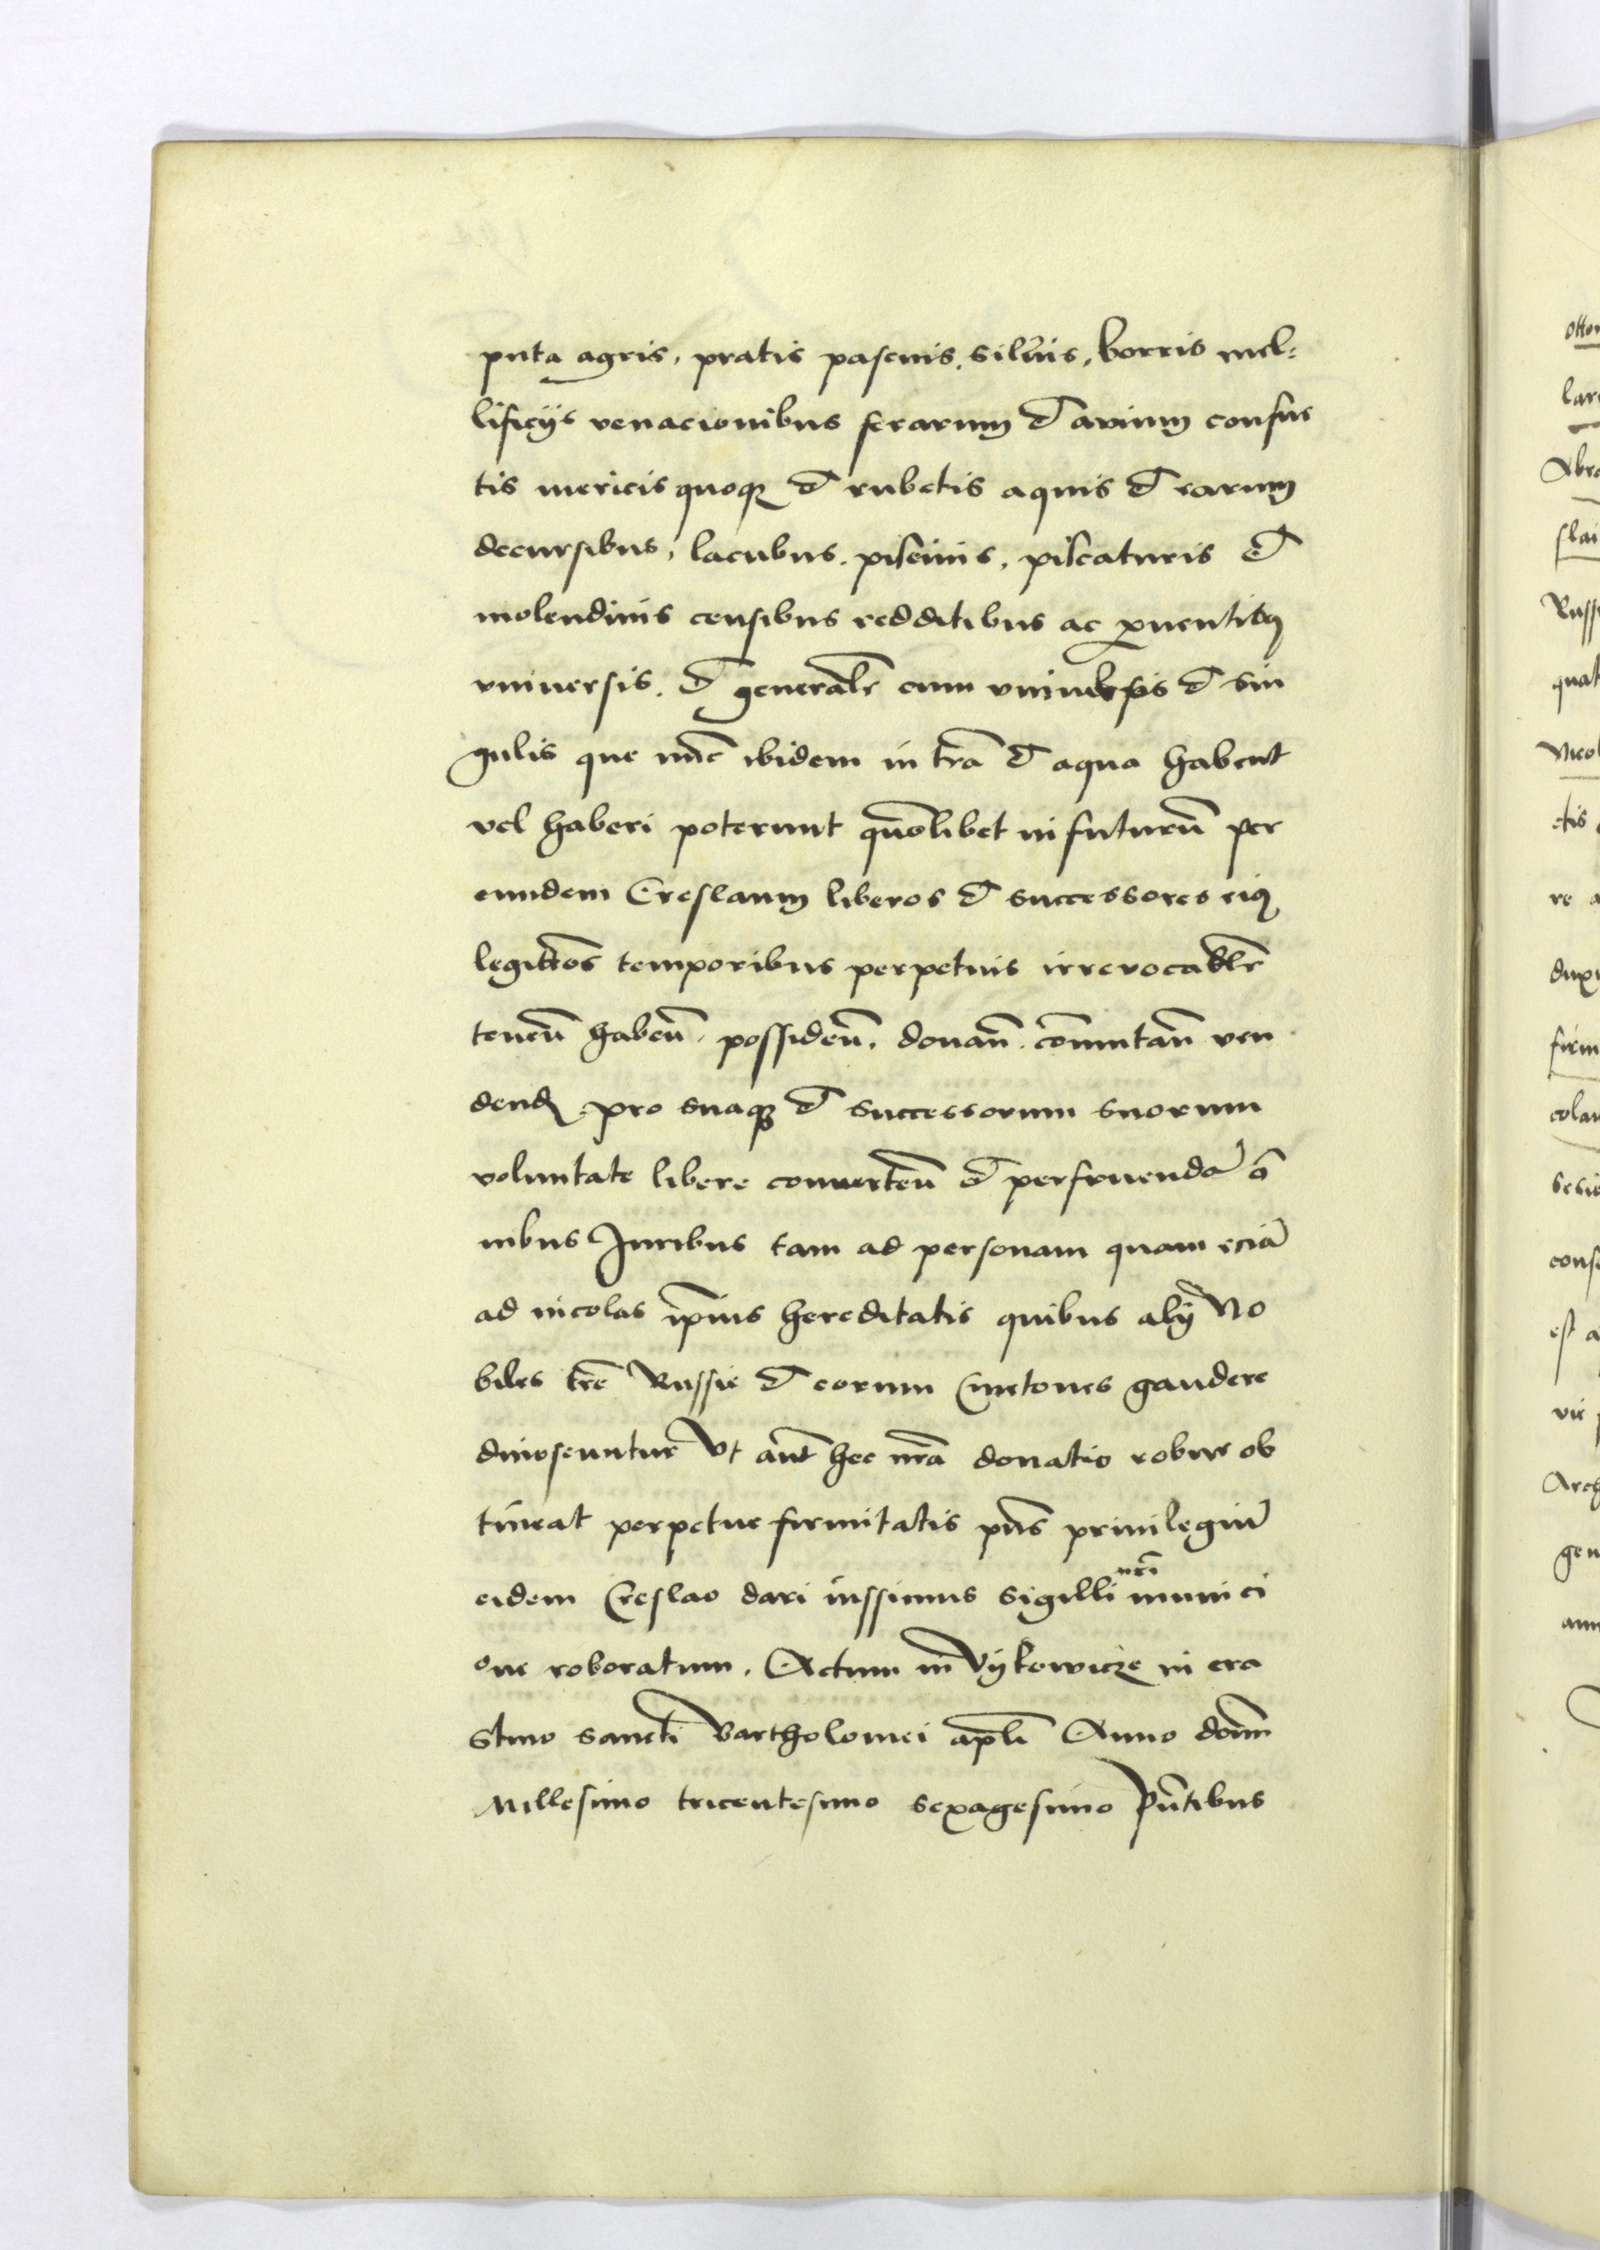 puta agris, pratis pascuis, siluis, borris mel:
lificijs venacionibus ferarum et avium consue
tis mericis quoqz et rubetis aquis et earum
decursibus, lacubus, piscinis, piscaturis et
molendinis censibus redditibus ac prouentibz
vniuersis. et generalr cum vniuersis et sin
gulis que nuc ibidem in tra et aqua habent
vel haberi poterunt quolibet in futuru per
eundem Creslaum liberos et successores eiq
legittos temporibus perpetuis irrevocablr
tenen haben, possiden, donan, comutan ven
dend pro suaqz et successorum suorum
voluntate libere conuerten et perfruenda o
nibus Juribus tam ad personam quam ecia
ad incolas ipius hereditatis quibus alij No
biles tre Russie et eorum Cmetones gaudere
dinoscuntur Vt aut hec nra donatio robur ob
tineat perpetue firmitatis pns priuilegiu
eidem Creslao dari iussimus sigilli nri munici
one roboratum. Actum in Vykowicze in cra
stino sancti Bartholomei apli Anno domi
Millesimo tricentesimo sexagesimo Pntibus